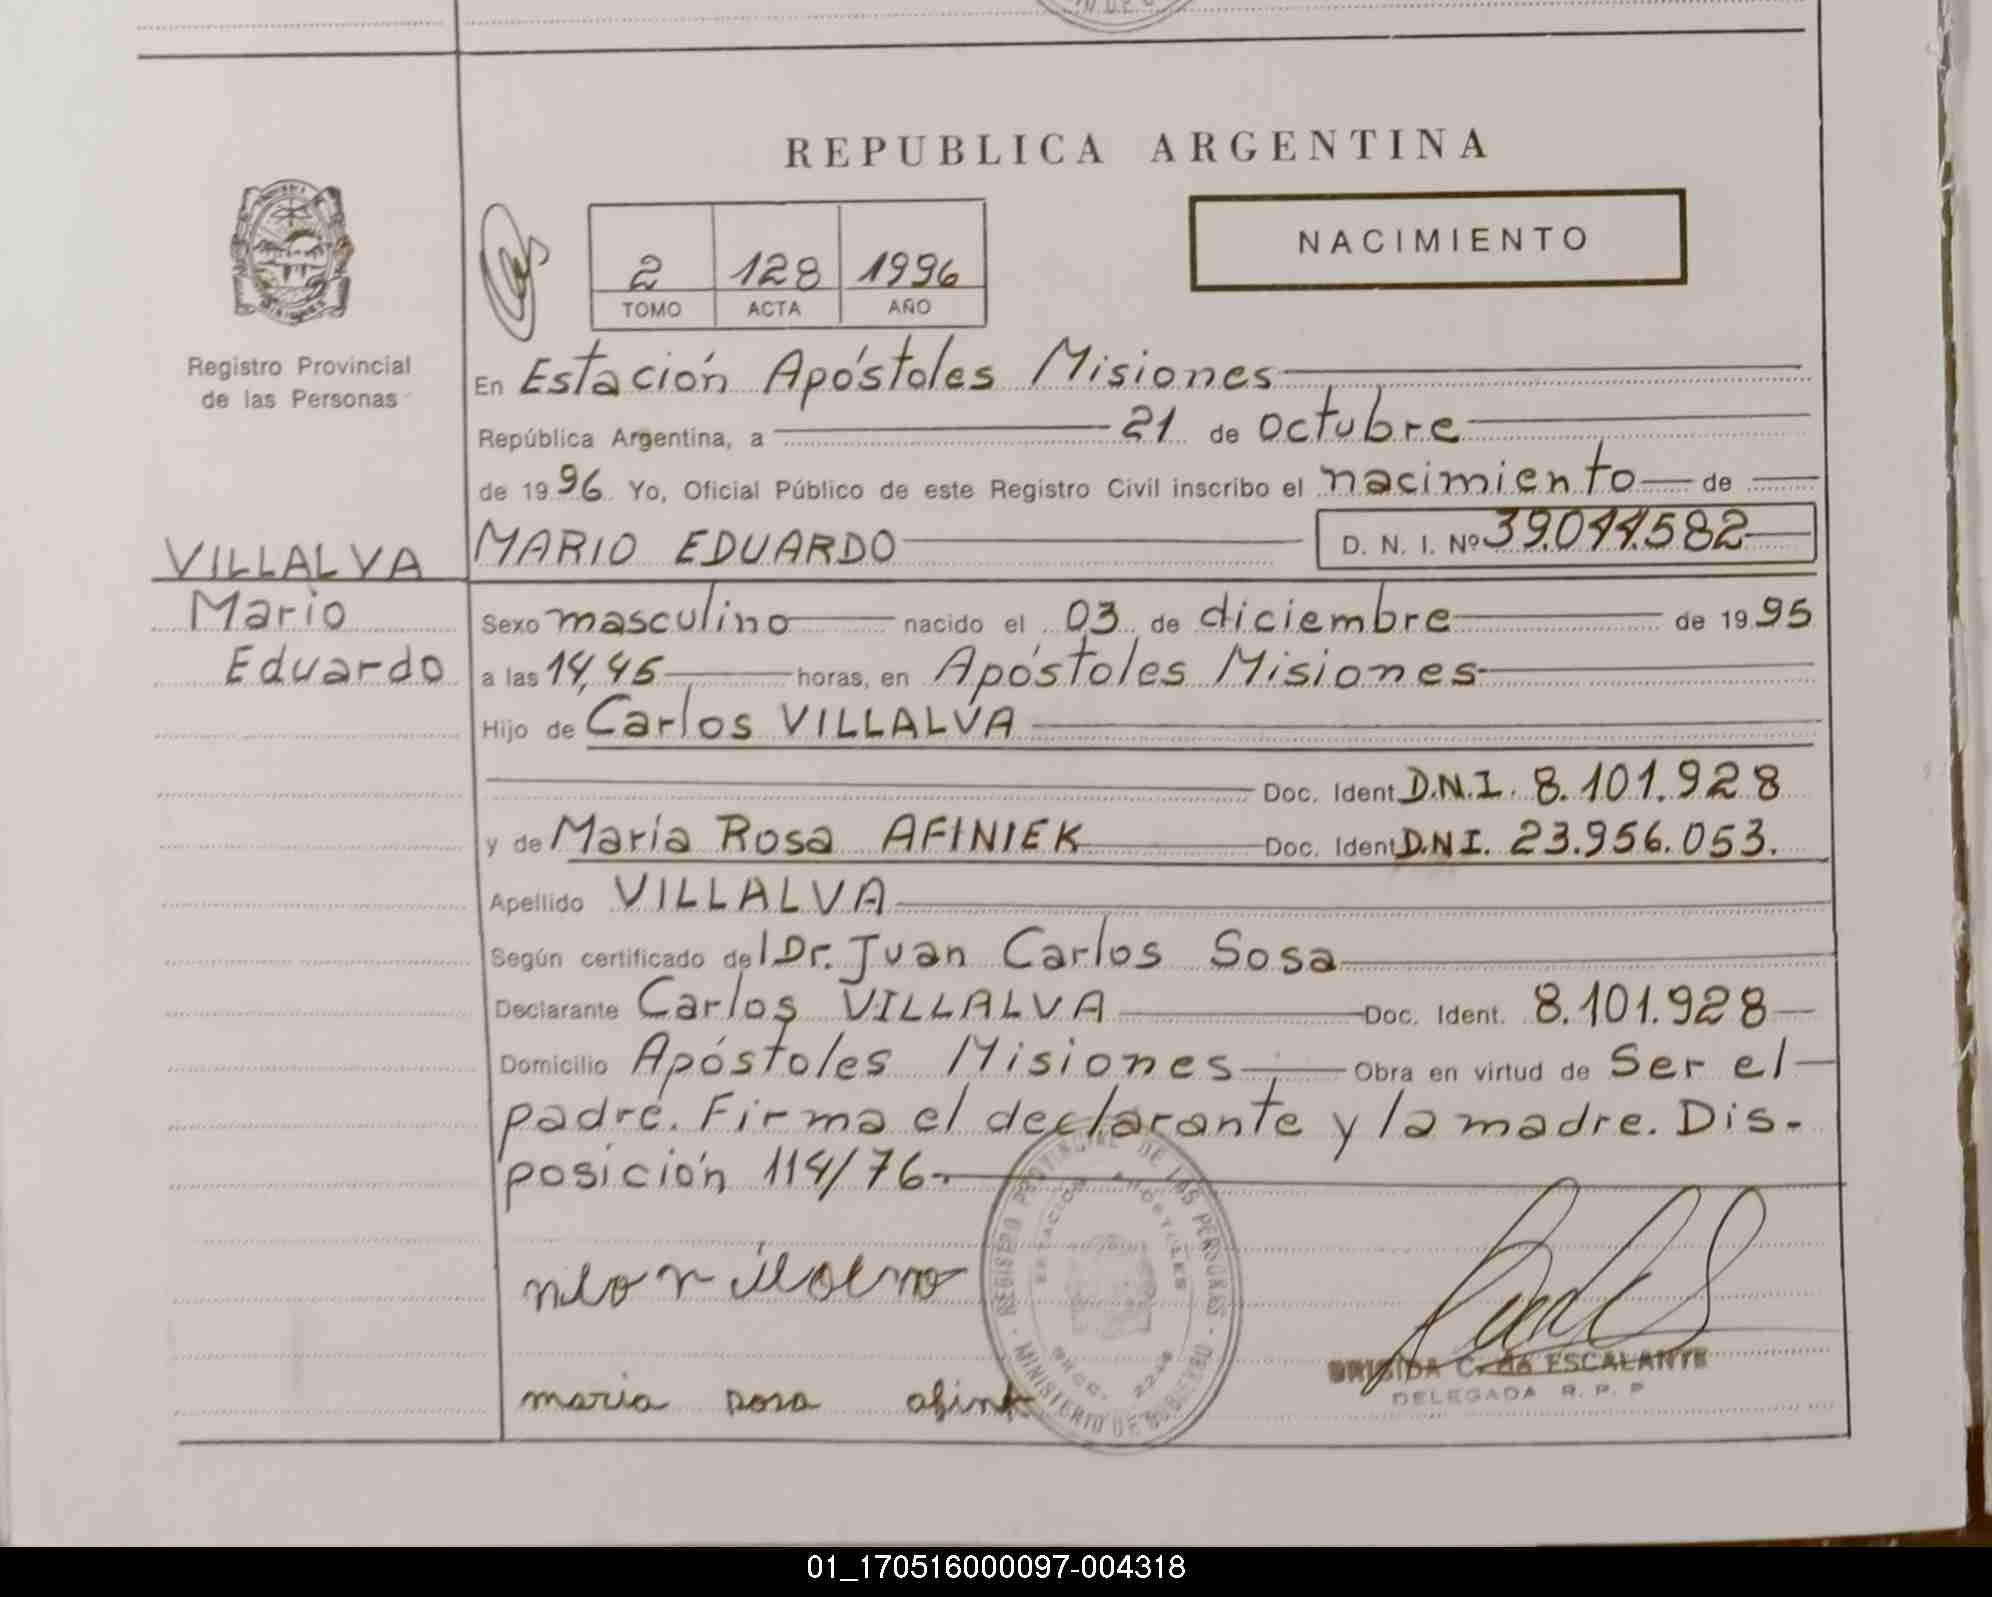 REPUBLICA ARGENTINA
NACIMIENTO
2 128 1996
TOMO ACTA AÑO
Registro Provincial
de las Personas
En Estación Apóstoles Misiones
República Argentina, a 21 de octubre
de 1996 Yo, Oficial Público de este Registro Civil inscribo el nacimiento de
VILLALVA
Mario
Eduardo
MARIO EDUARDO D. N. I. Nº 39.044.582
Sexo masculino nacido el 03 de diciembre de 1995
a las 14,45 horas, en Apóstoles Misiones
Hijo de Carlos VILLALVA
Doc. Ident D.N.I. 8.101.928
y de María Rosa AFINIEK Doc. Ident D.N.I. 23.956.053.
Apellido VILLALVA
Según certificado del Dr. Juan Carlos Sosa
Declarante Carlos VILLALVA Doc. Ident. 8.101.928
Domicilio Apóstoles Misiones Obra en virtud de Ser el
padre. Firma el declarante y la madre. Dis-
posición 114/76.
REGISTRO PROVINCIAL DE LAS PERSONAS
ESTACION APOSTOLES
MINISTERIO DE GOBIERNO
maria rosa
BRIGIDA C. de ESCALANTE
DELEGADA R. P. P
01_170516000097-004318